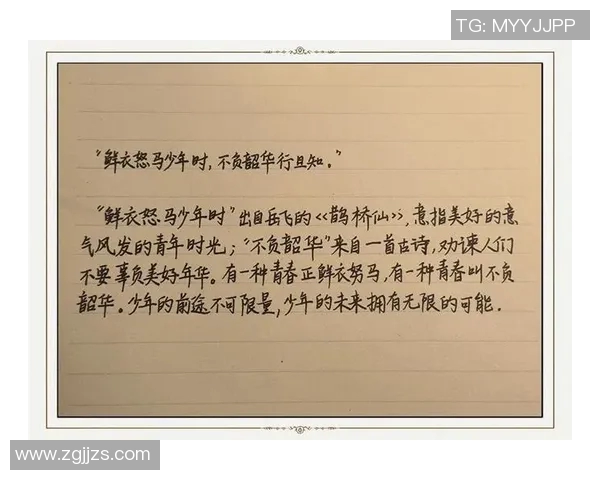 TG: MYYJJPP
"鲜衣怒马少年时，不负韶华行且知。"
"鲜衣怒马少年时"出自岳飞的《鹊桥仙》，意指美好的意
气风发的青年时光；"不负韶华"来自一首古诗，劝谏人们
不要辜负美好年华。有一种青春正鲜衣怒马，有一种青春叫不负
韶华。少年的前途不可限量，少年的未来拥有无限的可能.
www.zgjjzs.com